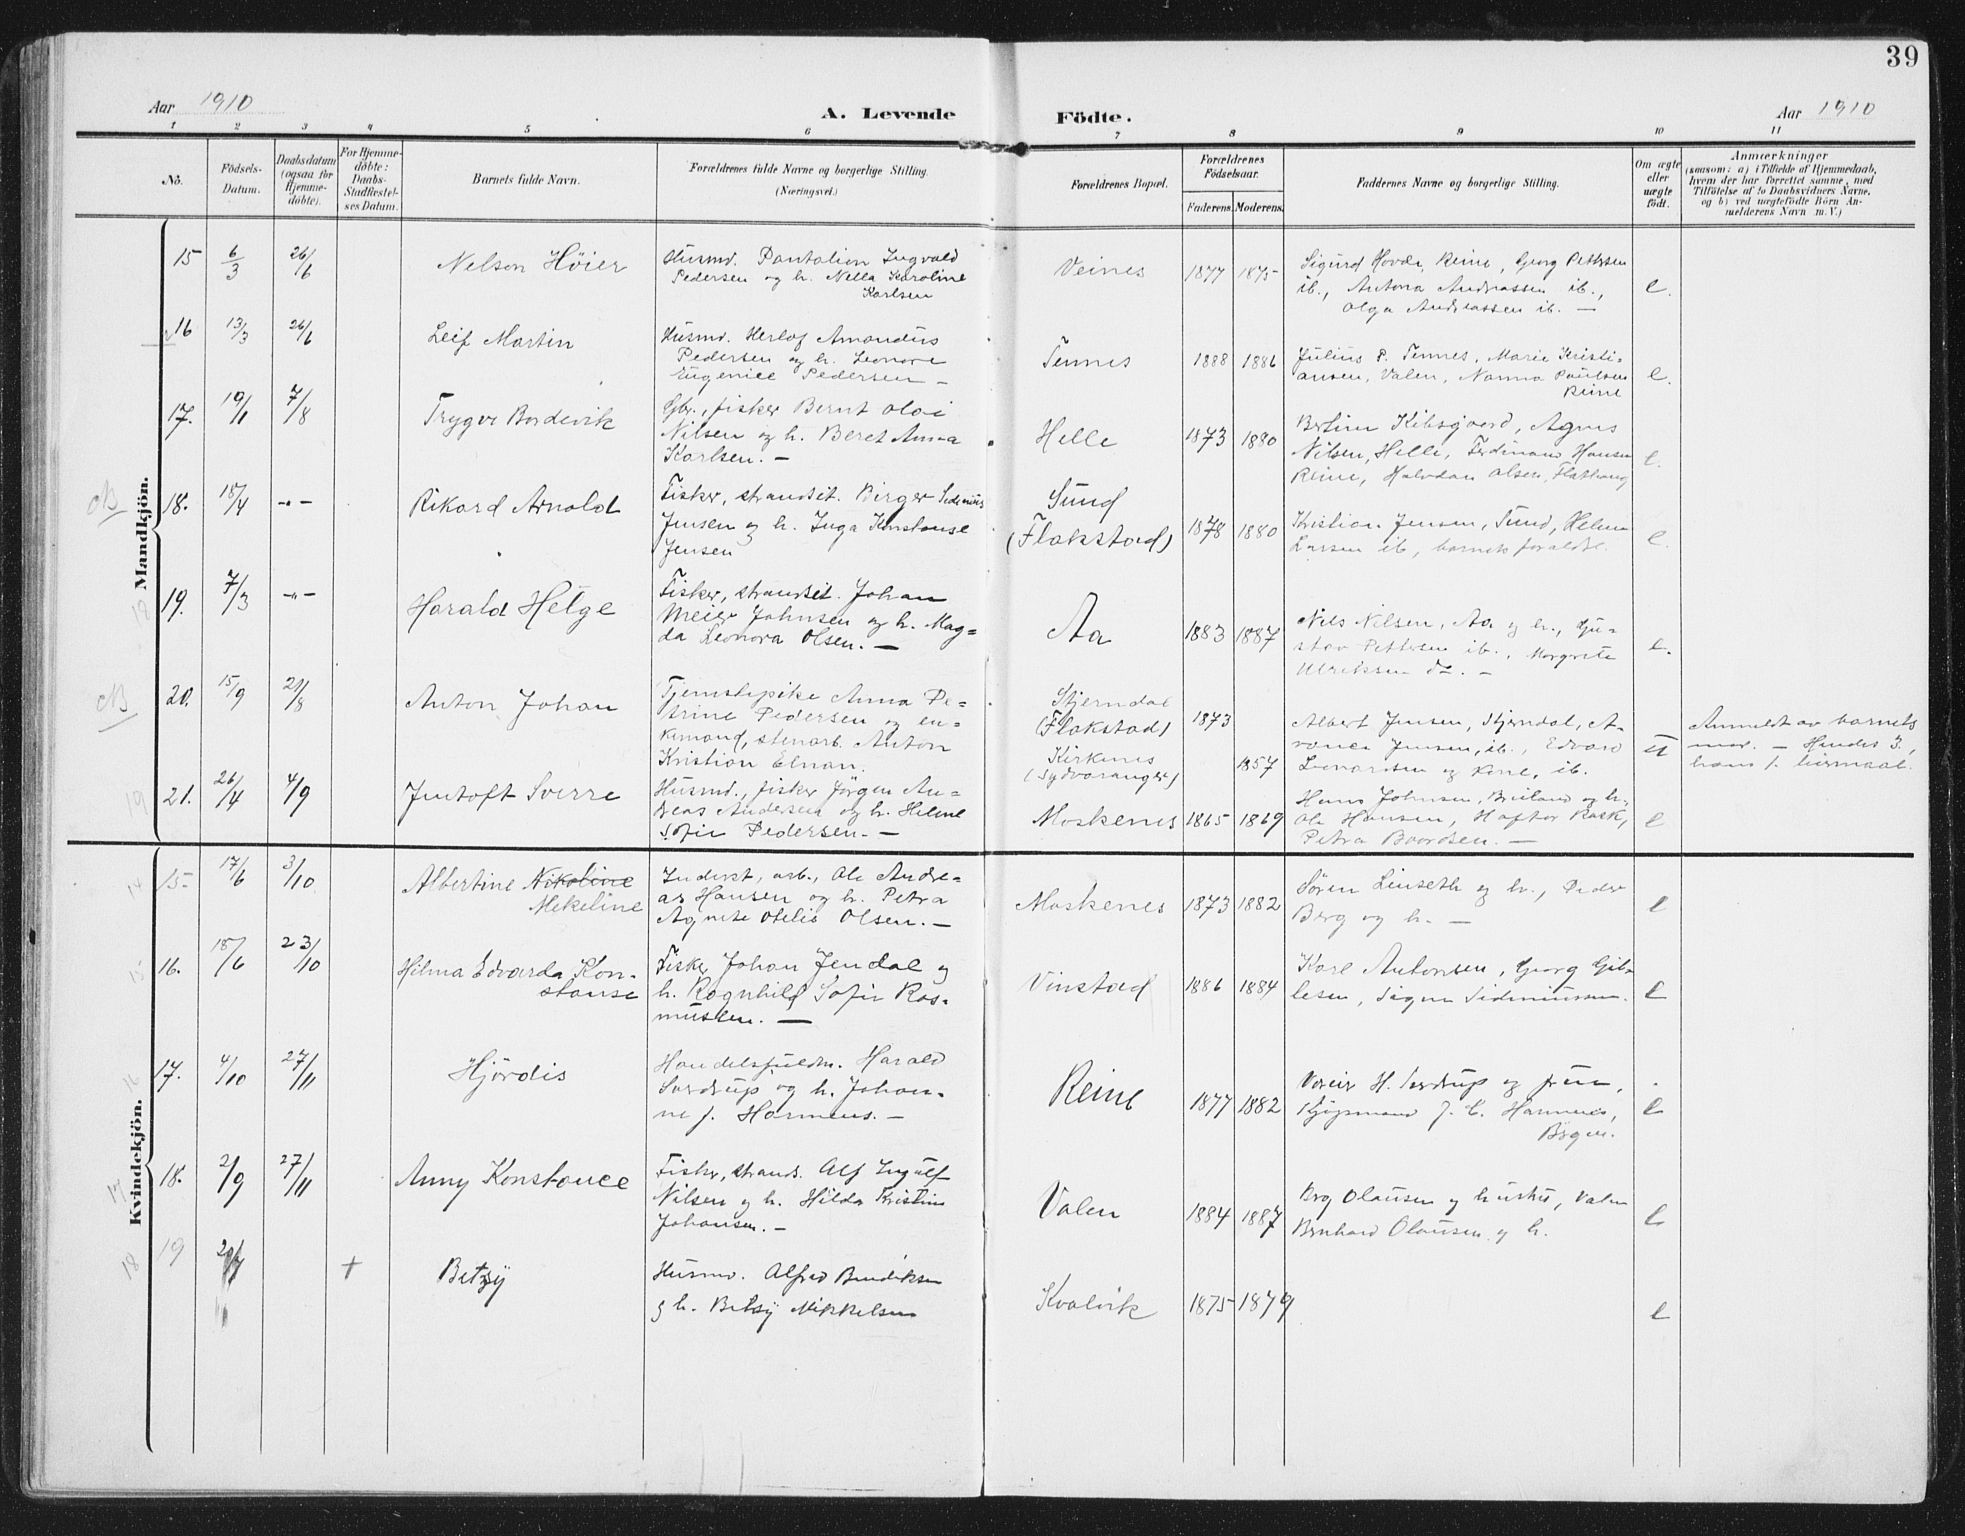 39
Aar 1910
A. Levende Födte.
Aar 1910
1 2 3 4 5 6 7 8 9 10 11
No.
Födsels-
Datum.
Daabsdatum
(ogsaa for
Hjemme-
döbte).
For Hjemme-
döbte:
Daabs-
Stadfæstel-
ses Datum.
Barnets fulde Navn.
Forældrenes fulde Navne og borgerlige Stilling.
(Næringsvei.)
Forældrenes Bopæl.
Forældrenes
Födselsaar.
Faderens. Moderens.
Faddernes Navne og borgerlige Stilling.
Om ægte
eller
uægte
födt.
Anmærkninger
(saasom: a) i Tilfælde af Hjemmedaab,
hvem der har forrettet samme, med
Tilföielse af to Daabsvidners Navne,
og b) ved uægtefödte Börn An-
melderens Navn m. V.)
Mandkjön.
15 6/3 26/6 Nelson Höier
Husmd. Pantalion Ingvald
Pedersen og h. Nella Karoline
Karlsen
Veines 1877 1875
Sigurd Hovde, Reine, Georg Pettersen
ib., Antona Andreassen ib.,
Olga Andreassen ib. —
e.
16 13/3 26/6 Leif Martin
Husmd. Herlof Amandus
Pedersen og h. Leonore
Eugenice Pedersen —
Tennes 1888 1886
Julius P. Tennes, Marie Kristi-
ansen, Valen, Nanna Paulsen
Reine
e.
17. 19/1 7/8 Trygve Bordevik
Gbr., fisker Bernt Olai
Nilsen og h. Beret Anna
Karlsen. —
Helle 1873 1880
Nilsen, Helle, Ferdinand Hansen
Reine, Halvdan Olsen,
e.
NB
18. 18/4 -"- Rikard Arnold
Fisker, strandsit. Birger Sedenius
Jensen og h. Inga Konstanse
Jensen
Sund
(Flakstad) 1878 1880
Kristian Jensen, Sund, Helene
Larsen ib, barnets foraldre.
e.
19. 7/3 -"- Harald Helge
Fisker, strandsit. Johan
Meier Johnsen og h. Mag-
da Leonora Olsen. —
Aa 1883 1887
Nils Nilsen, Aa og h., Gu-
stav Pettersen ib., Margrete
Ulriksen do. —
e.
NB
20. 15/9 21/8 Anton Johan
Tjenstepike Anna Pe-
trine Pedersen og en-
kemand, stenarb. Anton
Kristian Elnan.
Stjerndal
(Flakstad)
Kirkenes
(Sydvaranger)
1873
1857
Albert Jensen, Stjerndal, A-
vonca Jensen, ib., Edvard
Leonardsen og kone, ib.
u
Anmeldt av barnets
mor. — Hendes 3.,
hans 1. leiermaal.
21. 26/4 4/9 Jentoft Sverre
Husmd., fisker Jörgen An-
dreas Andersen og h. Helene
Sofie Pedersen. —
Moskenes 1865 1869
Hans Johnsen, Breiland og h.,
Ole Hansen, Haftor Rask,
Petra Baardsen. —
e
Kvindekjön.
15. 17/6 3/10 Albertine Nikoline
Mekeline
Inderst, arb., Ole Andre-
as Hansen og h. Petra
Agnete Otelie Olsen. —
Moskenes 1873 1882
Sören Linseth og h., Peder
Berg og h. —
e
16. 18/6 23/10 Hilma Edvarda Kon-
stanse
Fisker Johan Jendal og
h. Ragnhild Sofie Ras-
mussen. —
Vinstad 1886 1884
Karl Antonsen, Georg Gil-
lesen, Signe
e
17. 4/10 27/11 Hjördis
Handelsfuldm. Harald
Sverdrup og h. Johan-
ne f. Harmens. —
Reine 1877 1882
H. Sverdrup og frue,
Kjöpmand J. C. Harmens,
e
18. 2/9 27/11 Anny Konstance
Fisker, strands. Alf Ingolf
Nilsen og h. Hilda Kristine
Johansen. —
Valen 1884 1887
Olausen og hustru, Valen
Bernhard Olausen og h.
e
19 20/7 + Betzy
Husmd. Alfred Bendiksen
og h. Betsy Mikkelsen
Kvalvik 1875 1879
e